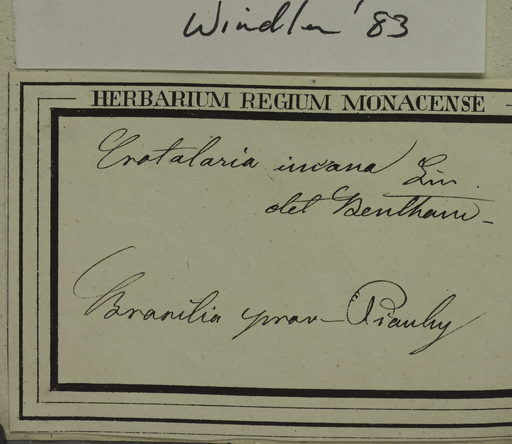 Windler '83
HERBARIUM REGIUM MONACENSE
Crotalaria incana Lin.
det Bentham
Brasilia prov. Piauhy